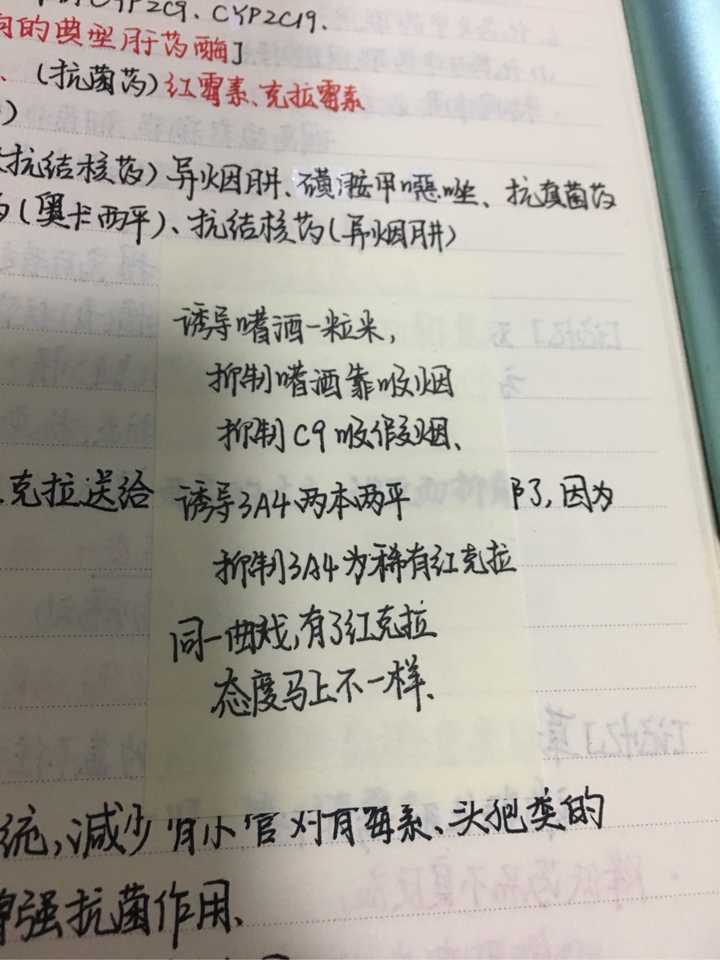 CYP2C9、CYP2C19.
的典型肝药酶]
(抗菌药)红霉素、克拉霉素
)
抗结核药)异烟肼、磺胺甲噁唑、抗真菌药
(奥卡西平)、抗结核药(异烟肼)
诱导嗜酒一粒米,
抑制嗜酒靠吸烟
抑制C9吸假烟、
克拉送给
诱导3A4两本两平
了,因为
抑制3A4为稀有红克拉
同一曲戏,有了红克拉
态度马上不一样、
统,减少肾小管对青霉素、头孢类的
增强抗菌作用、